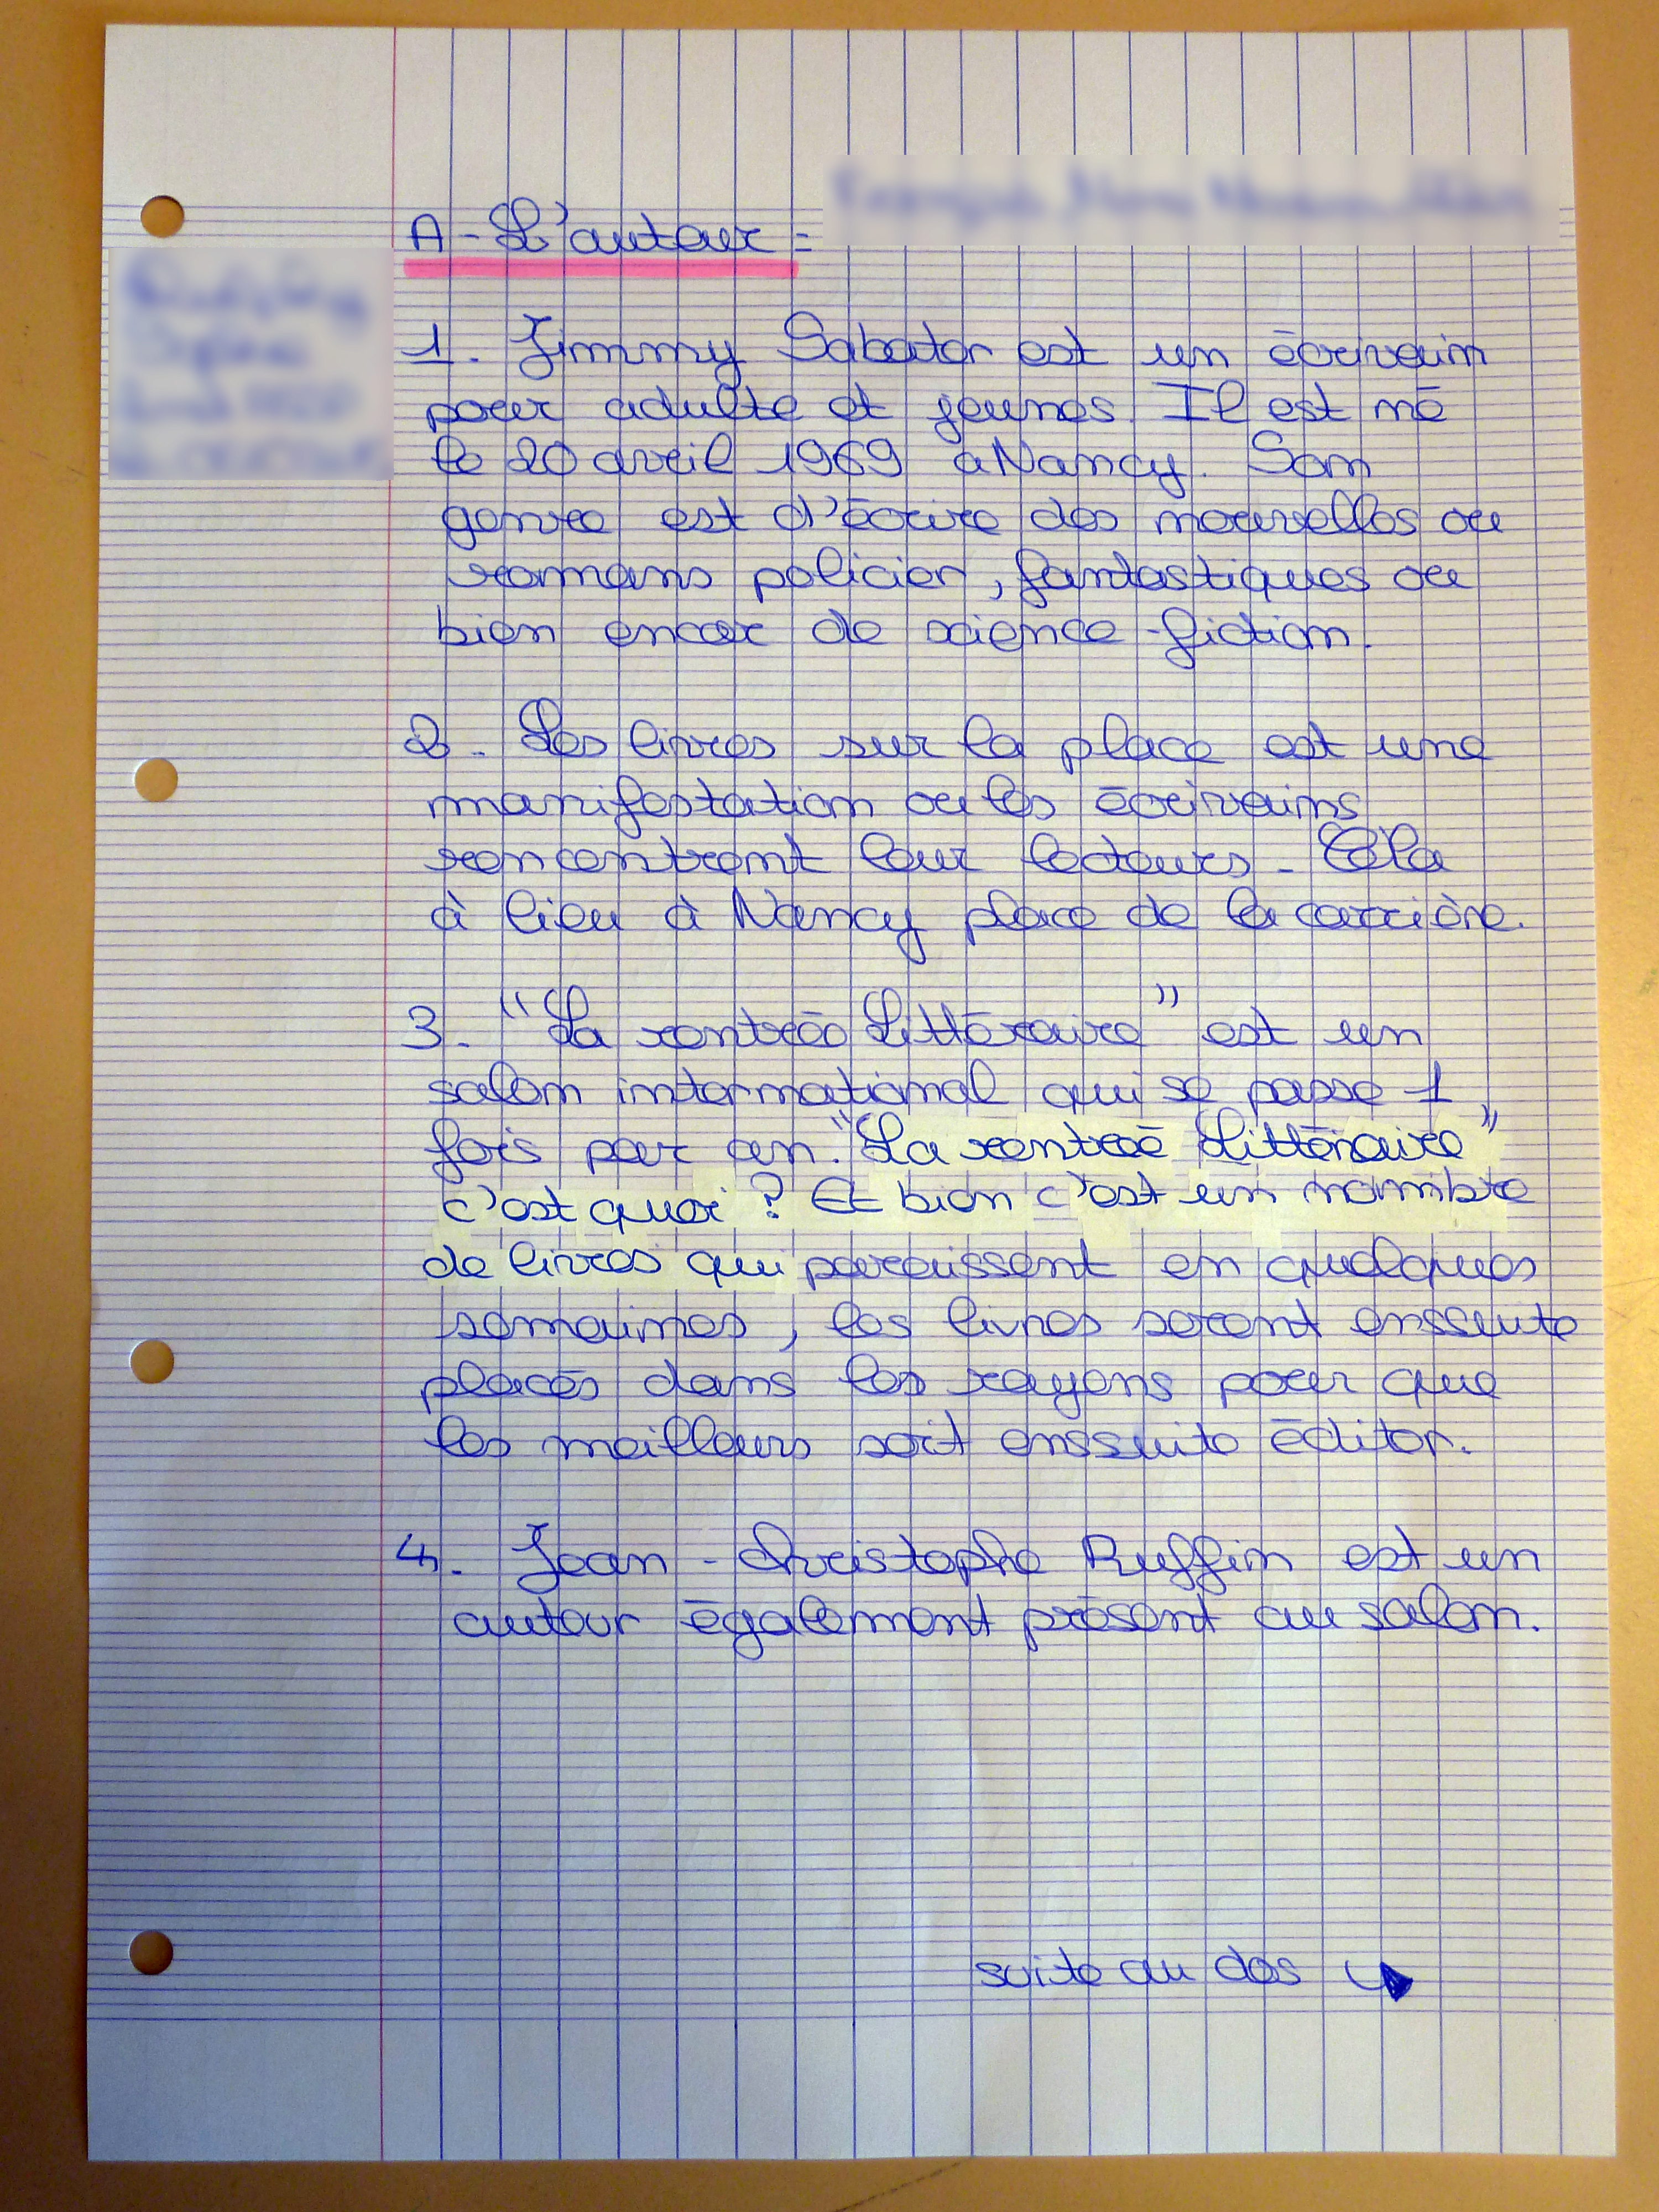 A - L'auteur :
1. Jimmy Sabater est un écrivain
pour adulte et jeunes. Il est né
le 20 avril 1969 a Nancy. Son
genre est d'écrire des nouvelles ou
romans policier, fantastiques ou
bien encor de science-fiction.
2. Les livres sur la place est une
manifestation ou les écrivains
rencontrent leur lecteurs. Cela
à lieu à Nancy place de la carrière.
3. "La rentrée Littéraire" est un
salon international qui se passe 1
fois par an. "La rentreé Littéraire"
c'est quoi ? Et bien c'est un nombre
de livres qui paraissent en quelques
semaines, les livres seront enssuite
placés dans les rayons pour que
les meilleurs soit enssuite éditer.
4. Jean - Christophe Ruffin est un
auteur également présent au salon.
suite au dos